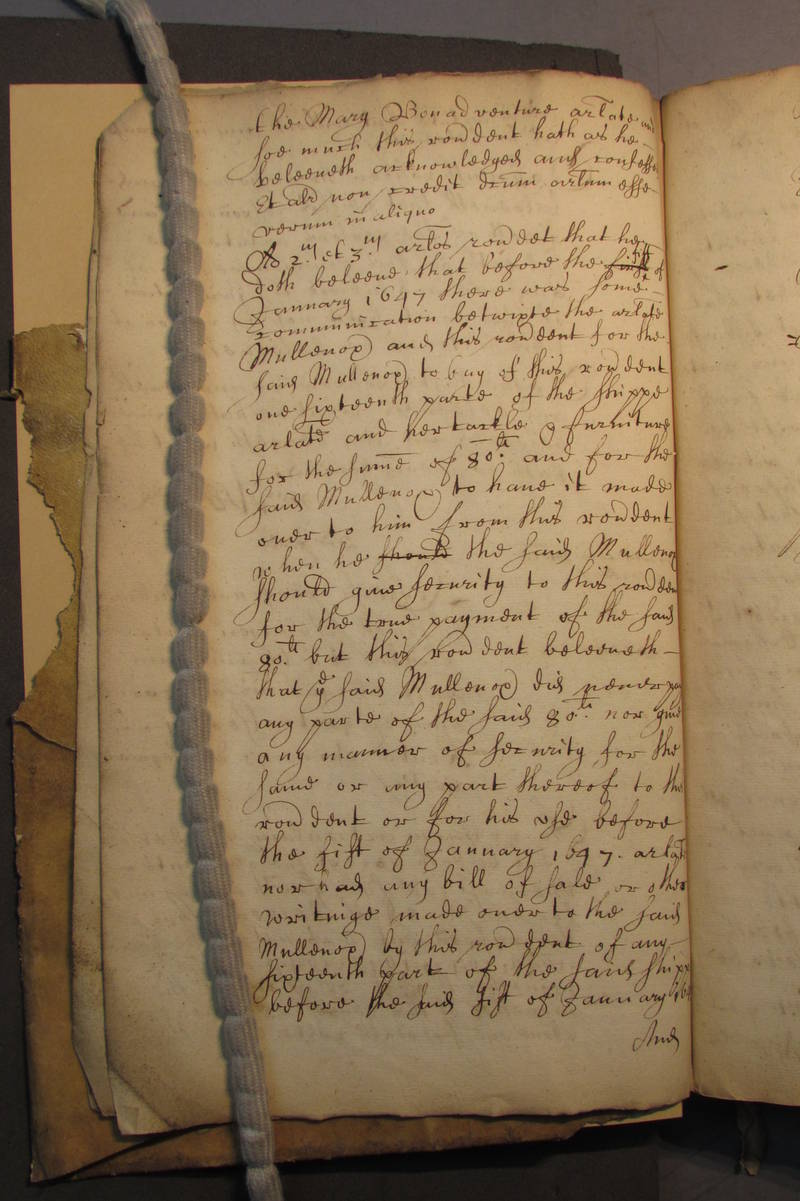 the Mary Bonadventure arlate and
soe much this rondent hath as he
beleeveth acknowledged and confesse
Et alr non credit dcum artum esse
verum in aliquo
Ad 2.um et 3.um artos rondet that he
doth beleeve that before the first fift of
January 1647 there was some
communication betwixte the arlate
Mullenox and this rondent for the
said Mullenox to buy of this rondent
one sixteenth parte of the shippe
arlate and her tackle & furniture
for the sume of 80.li and for the
said Mullenox to have it made
over to him from this rondent
when he should the said Mullenox
should give security to this rondent
for the true payment of the said
80.li but this rondent beleeveth
that ye said Mullenox did never pay
any parte of the said 80.li nor give
any manner of security for the
same or any part thereof to the
rondent or for his use before
the fift of January 1647. arlate
nor had any bill of sale or other
writinge made over to the said
Mullenox by this rondent of any
sixteenth part of the said shipp
before the said fift of January 164
And